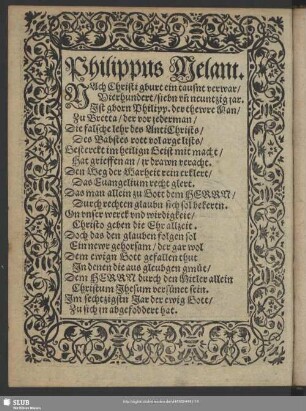 Philippus Melant.
NAch Christi gburt ein tausnt verwar/
Vierhundert/ siebn vn̄ neuntzig jar.
Ist gborn Philipp. der thewre Man/
Zu Bretta/ der vor jederman/
Die falsche lehr des AntiChrists/
Des Babstes rott vol arge lists/
Gesterckt im heilign Geist mit macht/
Hat grieffen an/ jr drawn veracht.
Den Weg der Warheit rein erklert/
Das Euangelium recht glert.
Das man allein zu Gott dem HERRN/
Durch rechten glaubn sich sol bekern.
On vnser werck vnd wirdigkeit/
Christo geben die Ehr allzeit.
Doch das den glauben folgen sol
Ein newr gehorsam/ der gar wol
Dem ewign Gott gefallen thut
In denen die aus gleubgen gmüt/
Dem HERRN durch den Mitler allein
Christum Jhesum versünet sein.
Im sechtzigsten Jar der ewig Gott/
Zu sich in abgefoddert hat.